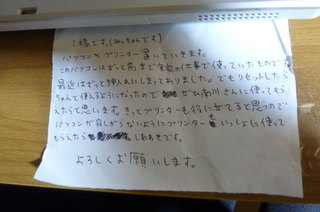 三橋です。(みっちゃんです)
パソコンとプリンター置いていきます。
このパソコンはずっと前まで会社の仕事で使っていたものです
最近はずっと押入にしまってありました。でもリセットしたら
ちゃんと使えるようになったので ぜひ 川さんに使ってもら
えたらと思います。きっとプリンターも役に立てると思うので
パソコンが寂しがらないようにプリンターもいっしょに使って
もらえたら しあわせです。
よろしくお願いします。